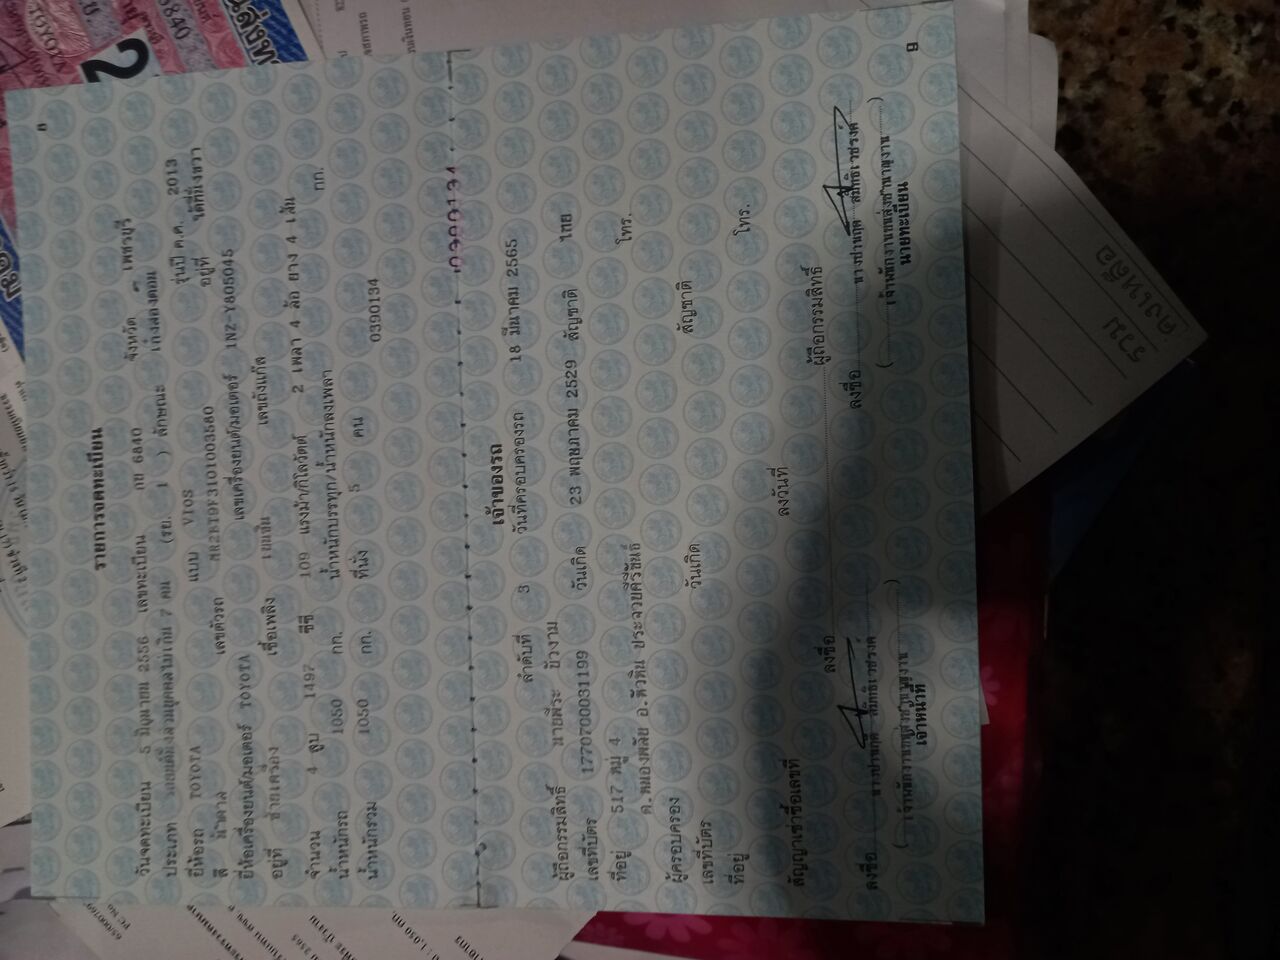 8
รายการจดทะเบียน
วันจดทะเบียน 5 มิถุนายน 2556 เลขทะเบียน กย 6840 จังหวัด เพชรบุรี
ประเภท รถยนต์นั่งส่วนบุคคลไม่เกิน 7 คน (รย. 1 ) ลักษณะ เก๋งสองตอน
ยี่ห้อรถ TOYOTA แบบ VIOS รุ่นปี ค.ศ. 2013
สี น้ำตาล เลขตัวรถ MR2BT9F3101003580 อยู่ที่ ใต้ที่นั่งขวา
ยี่ห้อเครื่องยนต์/มอเตอร์ TOYOTA เลขเครื่องยนต์/มอเตอร์ 1NZ-Y805045
อยู่ที่ ซ้ายเครื่อง เชื้อเพลิง เบนซิน เลขถังแก๊ส
จำนวน 4 สูบ 1497 ซีซี 109 แรงม้า/กิโลวัตต์ 2 เพลา 4 ล้อ ยาง 4 เส้น
น้ำหนักรถ 1050 กก. น้ำหนักบรรทุก/น้ำหนักลงเพลา กก.
น้ำหนักรวม 1050 กก. ที่นั่ง 5 คน 0390134
0390134
เจ้าของรถ
ลำดับที่ 3 วันที่ครอบครองรถ 18 มีนาคม 2565
ผู้ถือกรรมสิทธิ์ นายพีระ บัวงาม
เลขที่บัตร 1770700031199 วันเกิด 23 พฤษภาคม 2529 สัญชาติ ไทย
ที่อยู่ 517 หมู่ 4
ต.หนองพลับ อ.หัวหิน ประจวบคีรีขันธ์ โทร.
ผู้ครอบครอง
เลขที่บัตร วันเกิด สัญชาติ
ที่อยู่ โทร.
สัญญาเช่าซื้อเลขที่ ลงวันที่
ลงชื่อ ผู้ถือกรรมสิทธิ์
ลงชื่อ ลงชื่อ
เจ้าหน้าที่ นายทะเบียน
9
รวม
คงเหลือ